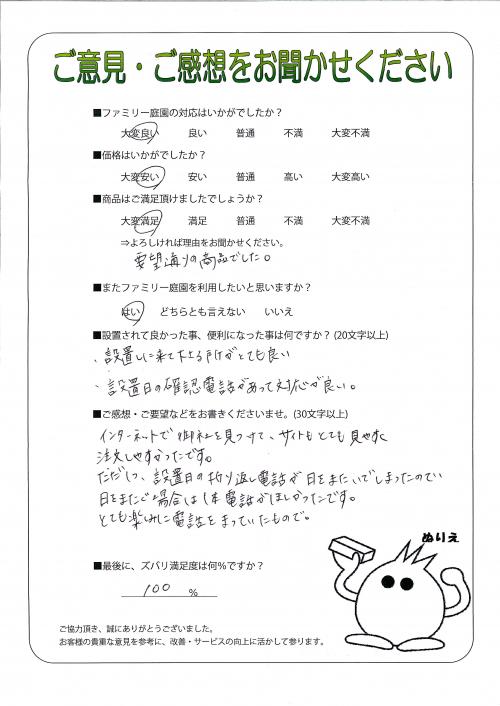 ご意見・ご感想をお聞かせください
■ファミリー庭園の対応はいかがでしたか？
大変良い 良い 普通 不満 大変不満
■価格はいかがでしたか？
大変安い 安い 普通 高い 大変高い
■商品はご満足頂けましたでしょうか？
大変満足 満足 普通 不満 大変不満
⇒よろしければ理由をお聞かせください。
要望通りの商品でした。
■またファミリー庭園を利用したいと思いますか？
はい どちらとも言えない いいえ
■設置されて良かった事、便利になった事は何ですか？(20文字以上)
・設置しに来て下さる所がとても良い
・設置日の確認電話があって対応が良い。
■ご感想・ご要望などをお書きくださいませ。(30文字以上)
インターネットで御社を見つけて、サイトもとても見やすく
注文しやすかったです。
ただし、設置日の折り返し電話が日をまたいでしまったので
日をまたぐ場合は1本電話がほしかったです。
とても楽しみに電話をまっていたもので。
ぬりえ
■最後に、ズバリ満足度は何％ですか？
100 %
ご協力頂き、誠にありがとうございました。
お客様の貴重な意見を参考に、改善・サービスの向上に活かして参ります。